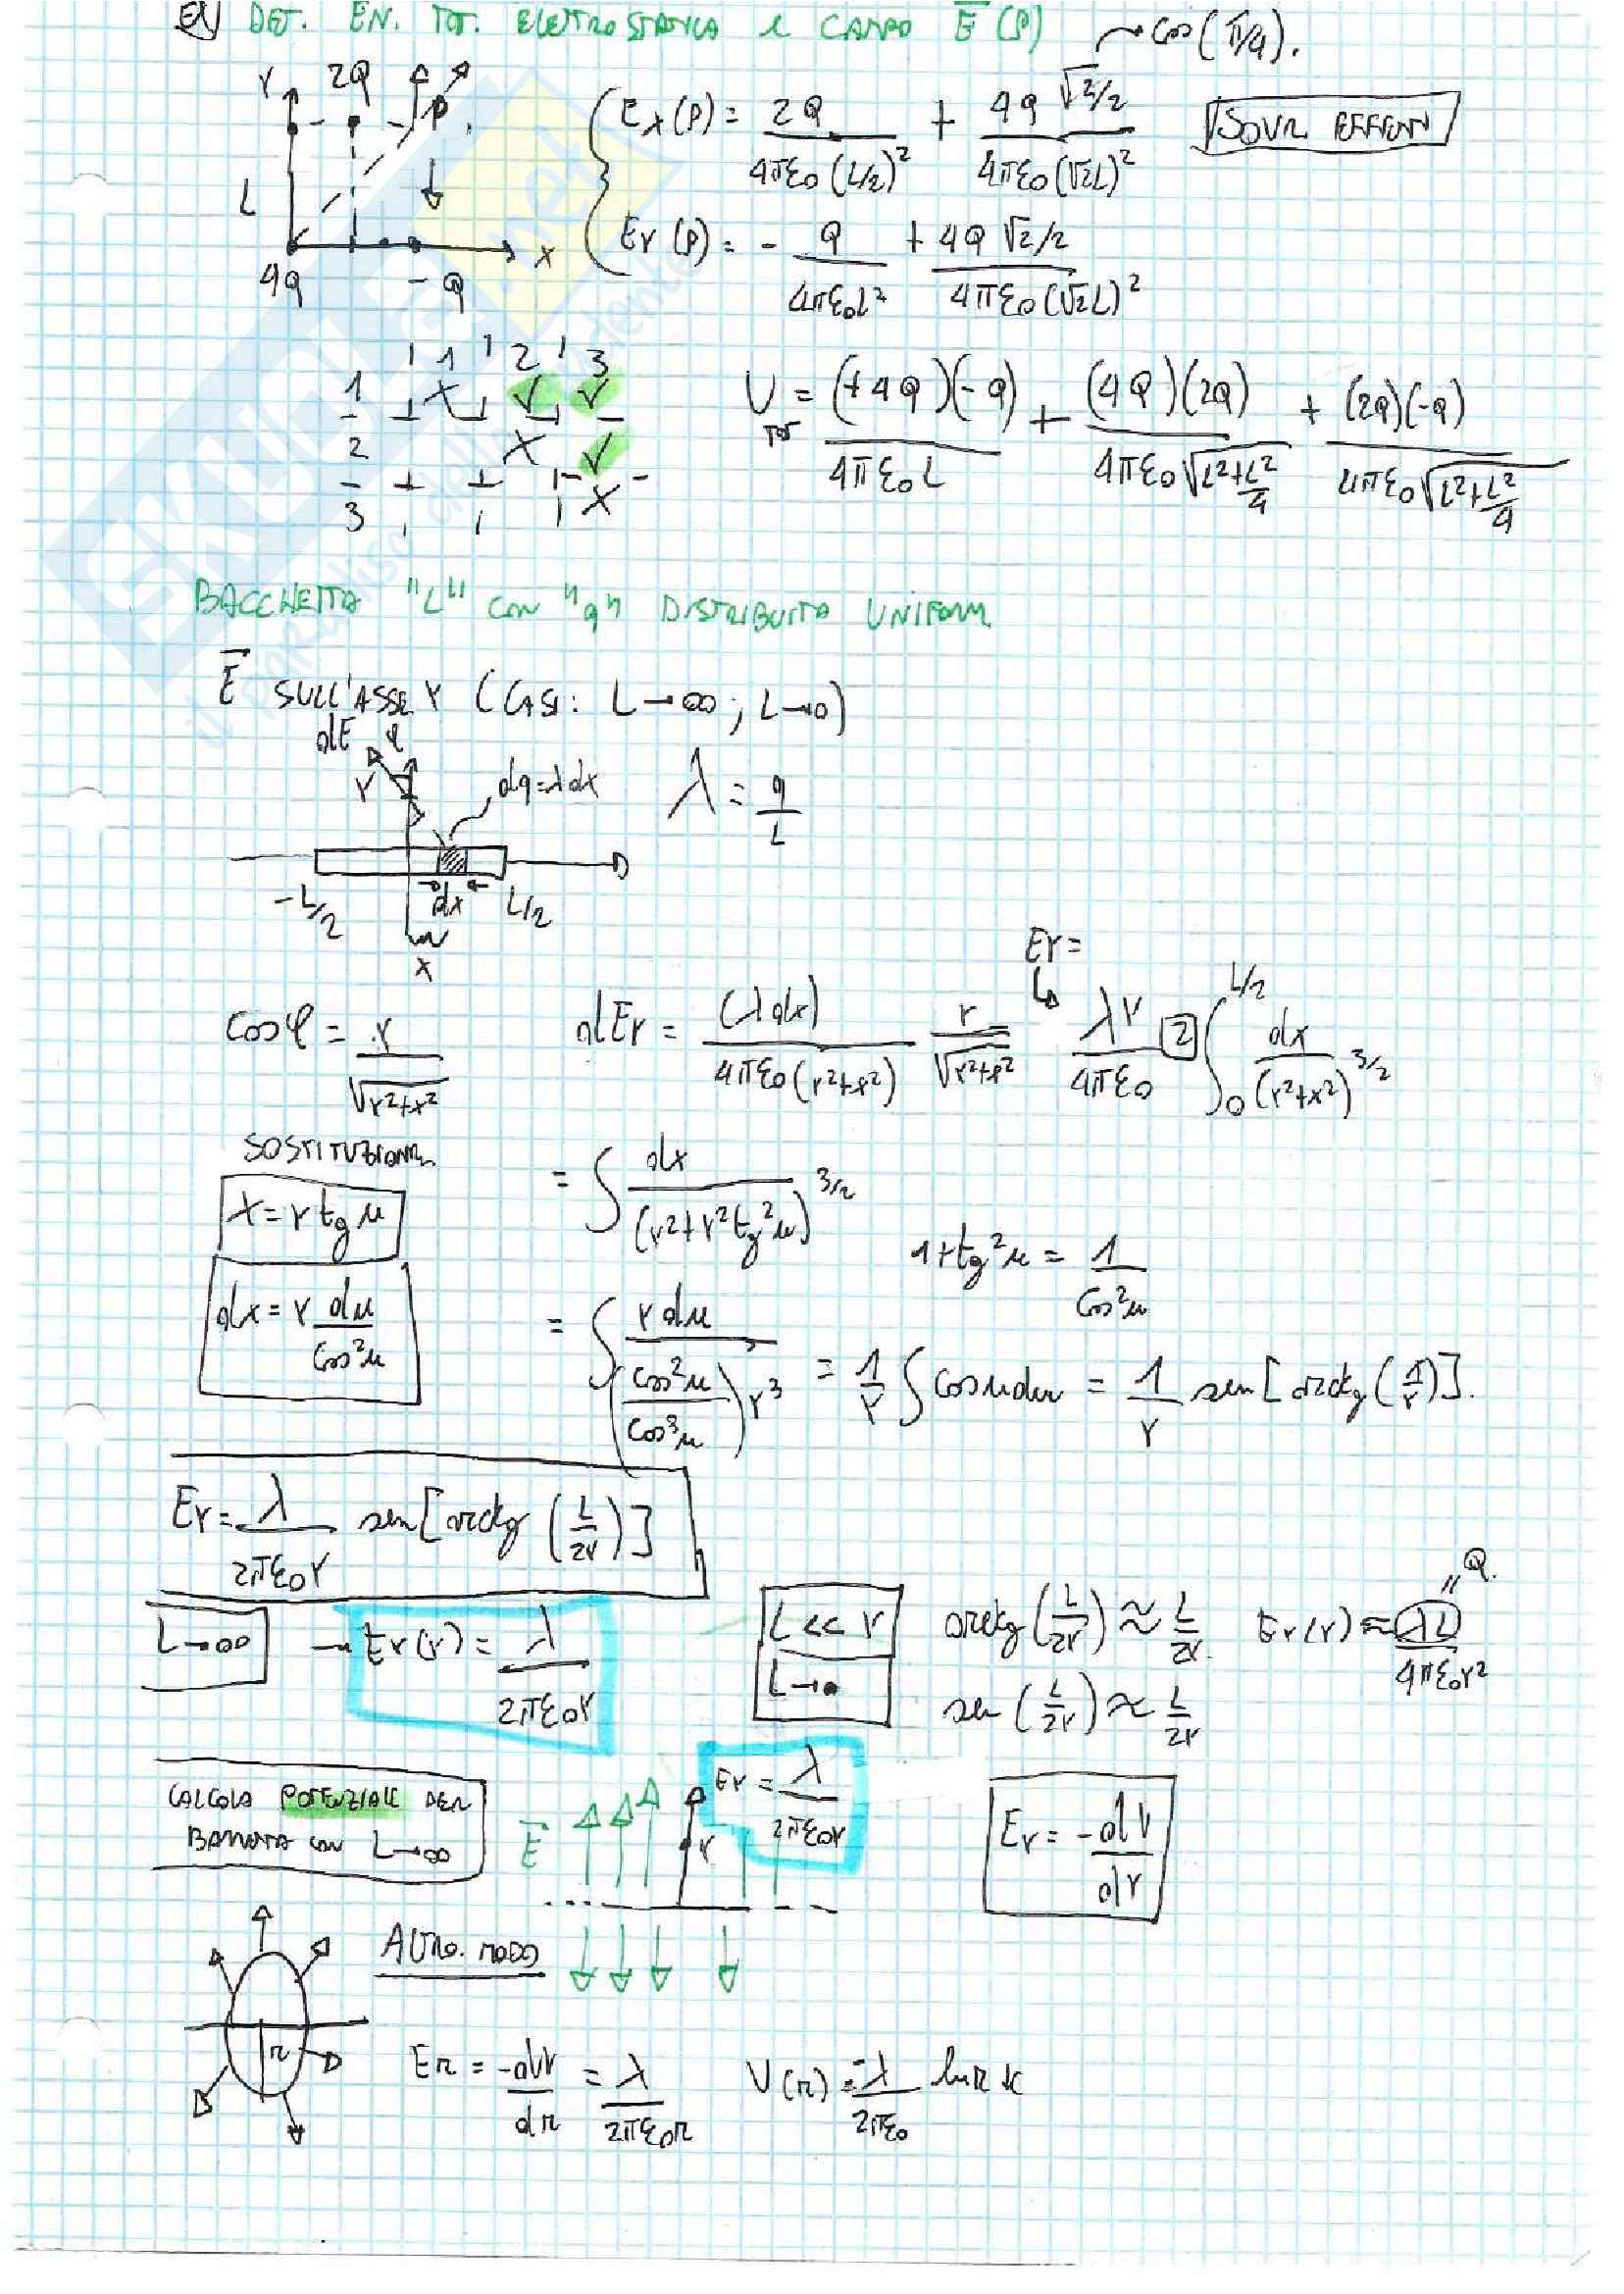 ES DET. EN. TOT. ELETTROSTATICA e CAMPO E̅(P) → cos(π/4).
Y 2Q P
L
4Q -Q X
Ex(P) = 2Q / 4πε0(L/2)² + 4Q √2/2 / 4πε0(√2L)² SOVR EFFETTI
Ey(P) = - Q / 4πε0L² + 4Q √2/2 / 4πε0(√2L)²
1 2 3
1 X √ √
2 X √
3 X
U TOT = (+4Q)(-Q) / 4πε0L + (4Q)(2Q) / 4πε0√(L²+L²/4) + (2Q)(-Q) / 4πε0√(L²+L²/4)
BACCHETTA "L" con "q" DISTRIBUITA UNIFORM
E̅ SULL'ASSE Y (CASI: L→∞ ; L→0)
dE φ
Y dq=λdx λ = q/L
-L/2 dx L/2
x
Ey=
cosφ = y / √(y²+x²) dEy = (λdx) / 4πε0(y²+x²) y / √(y²+x²) λy / 4πε0 2 ∫0^L/2 dx / (y²+x²)^3/2
SOSTITUZIONE
x = y tg u = ∫ dx / (y²+y²tg²u)^3/2
1+tg²u = 1 / cos²u
dx = y du / cos²u = ∫ y du / (cos²u / cos³u) y³ = 1/y ∫ cosu du = 1/y sen[arctg(1/y)].
Ey = λ / 2πε0y sen[arctg(L/2y)]
L→∞ → Ey(y) = λ / 2πε0y
L<<y arctg(L/2y) ≈ L/2y. Ey(y) ≈ λL / 4πε0y² = Q.
L→0 sen(L/2y) ≈ L/2y
CALCOLA POTENZIALE PER
BACCHETTA con L→∞
E̅ Y Ey = λ / 2πε0y Ey = -dV / dy
ALTRO MODO
r
Er = -dV / dr = λ / 2πε0r V(r) = -λ / 2πε0 ln r + k
SKUOLA.net
il paradiso dello studente